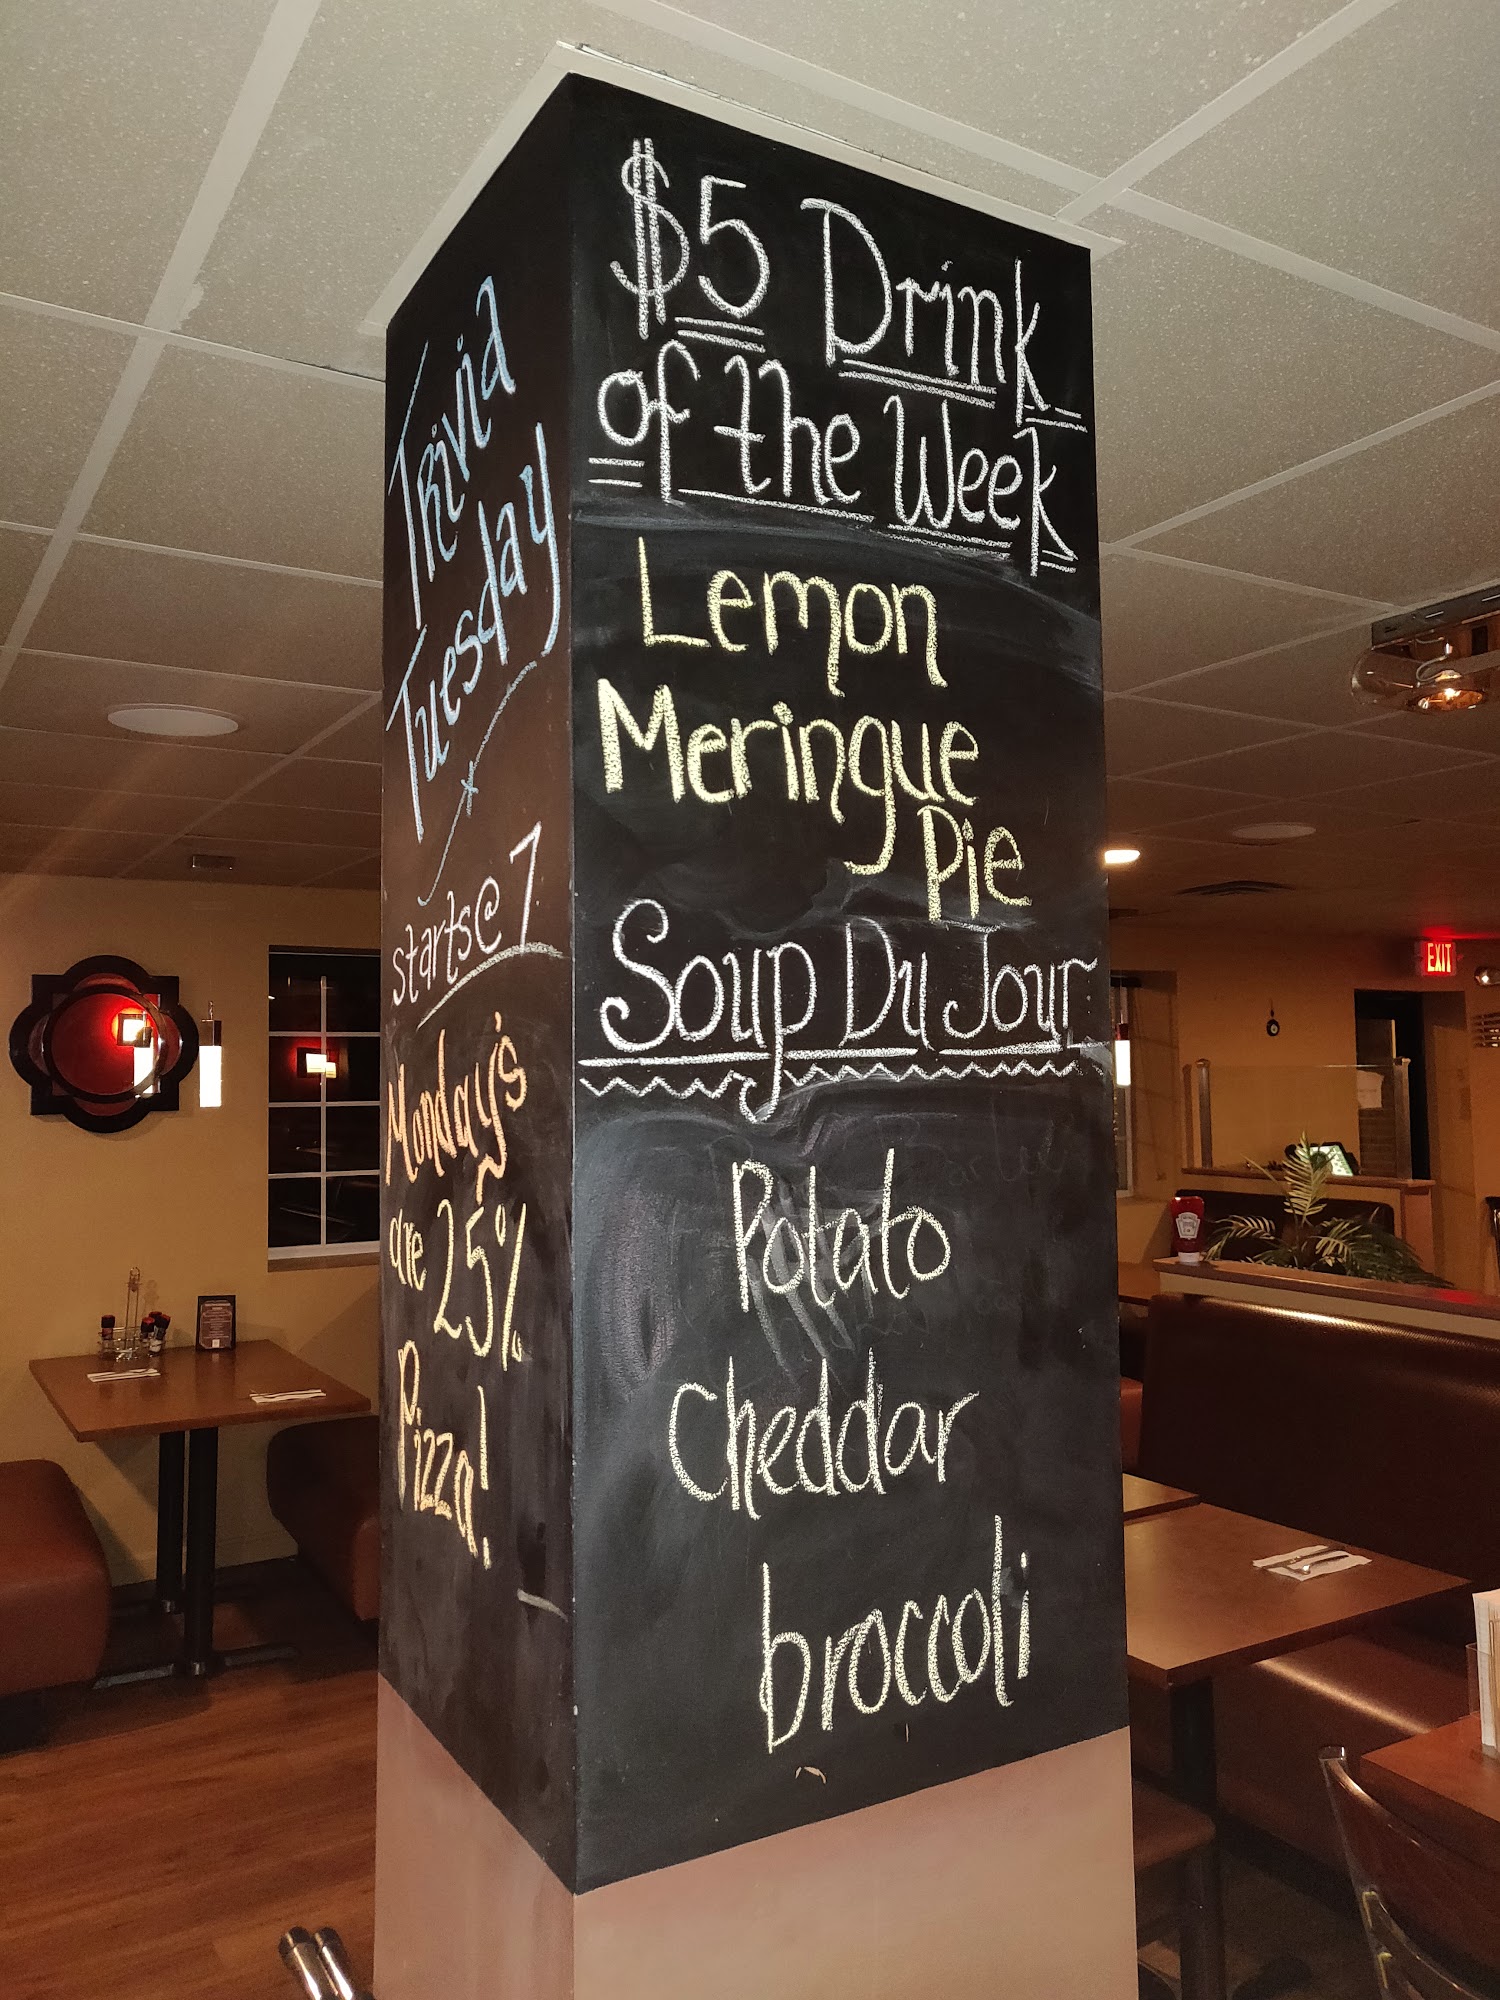 Trivia
Tuesday
starts@7
Monday's
are 25%
Pizza!
$5 Drink
of the Week
Lemon
Meringue
Pie
Soup Du Jour
Potato
Cheddar
broccoli
EXIT